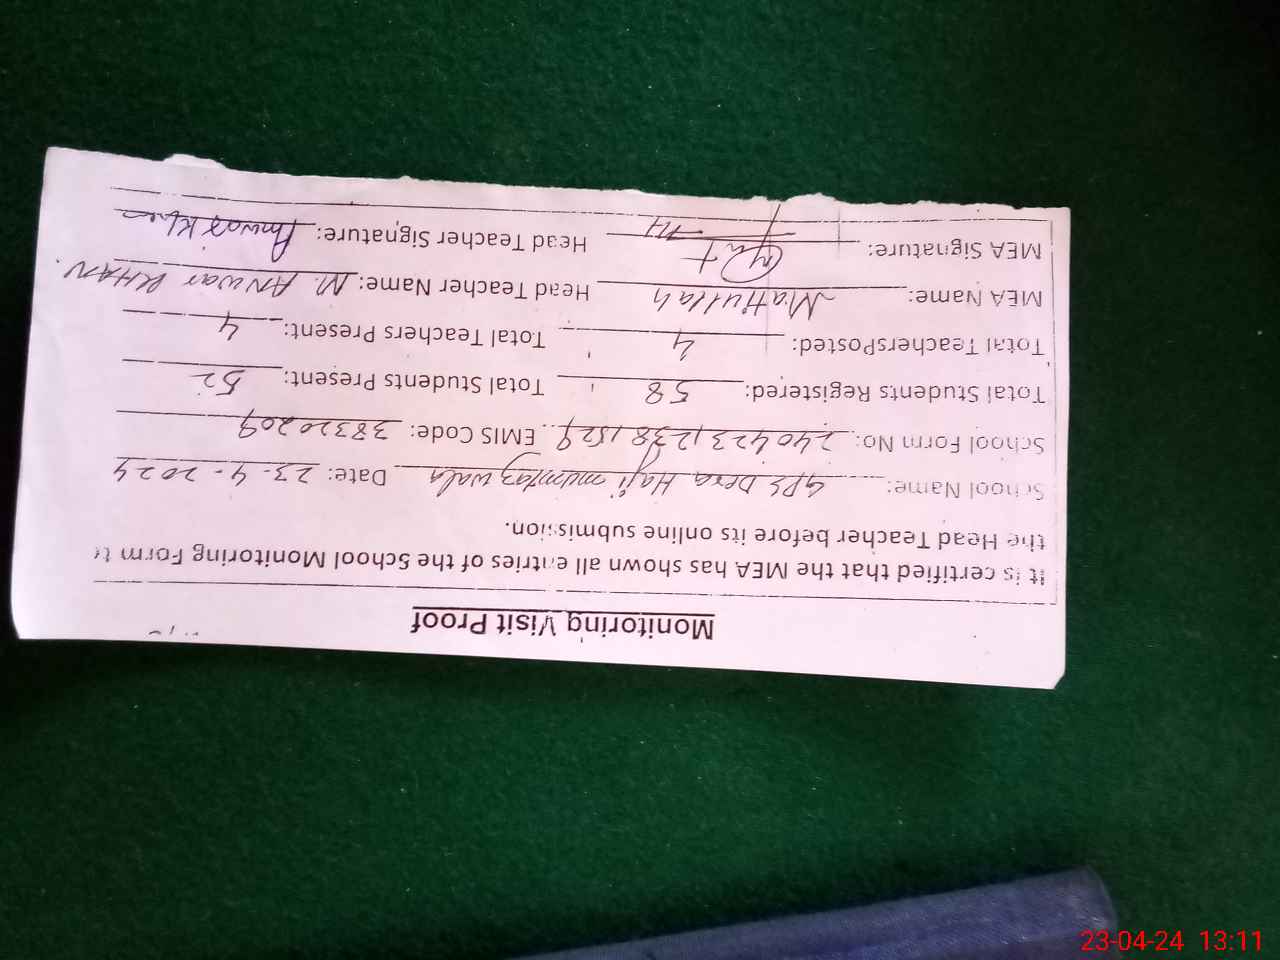 Monitoring Visit Proof
It is certified that the MEA has shown all entries of the School Monitoring Form to
the Head Teacher before its online submission.
School Name: GPS Dera Haji mumtaz wala Date: 23-4-2024
School Form No: 240423,1238,1529 EMIS Code: 38320209
Total Students Registered: 58 Total Students Present: 52
Total TeachersPosted: 4 Total Teachers Present: 4
MEA Name: Matiullah Head Teacher Name: M. ANWAR KHAN.
MEA Signature: Head Teacher Signature: Anwar Khan
23-04-24 13:11